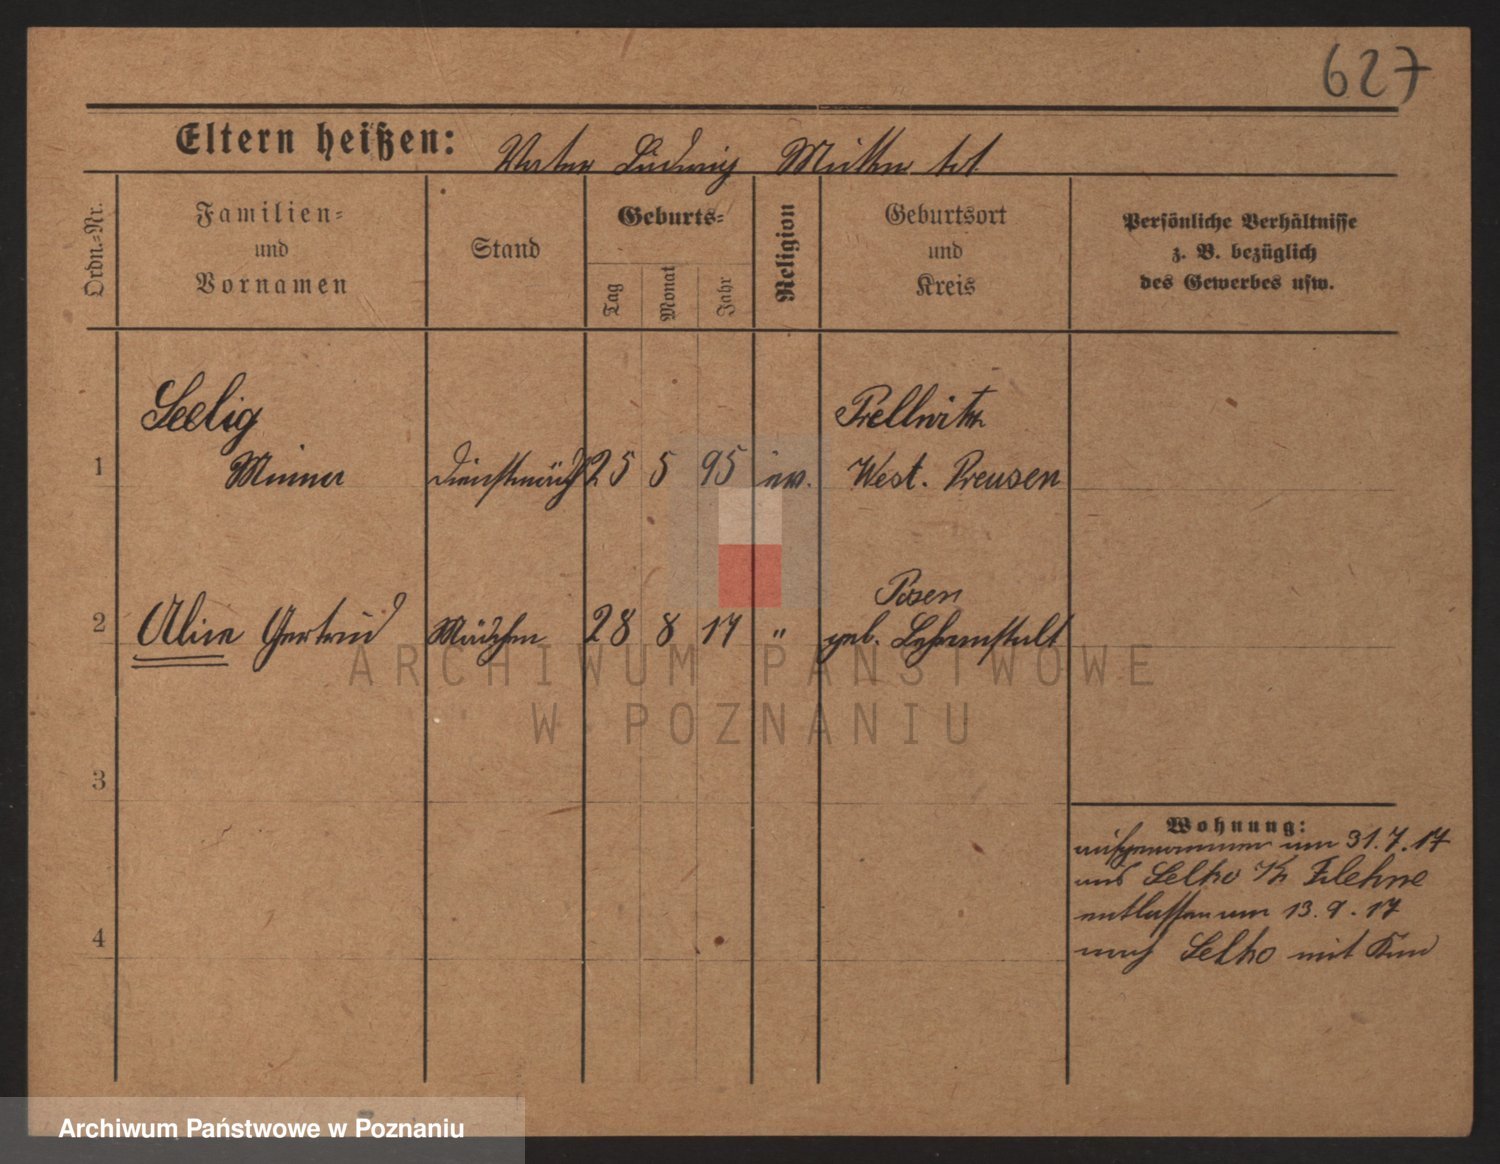 627
Eltern heißen: Vater Ludwig Mutter tot
Ordn.-Nr.
Familien-
und
Vornamen
Stand
Geburts-
Tag
Monat
Jahr
Religion
Geburtsort
und
Kreis
Persönliche Verhältnisse
z. B. bezüglich
des Gewerbes usw.
Seelig Prellwitz
1 Minna Dienstmäd 25 5 95 ev. West. Preusen
Posen
2 Alice Gertrud Mädchen 28 8 17 " geb. Hebammenstalt
3
Wohnung:
aufgenommen am 31.7.17
aus Selho Kr Filehne
entlassen am 13.9.17
4
nach Selho mit Kind
ARCHIWUM PAŃSTWOWE
W POZNANIU
Archiwum Państwowe w Poznaniu